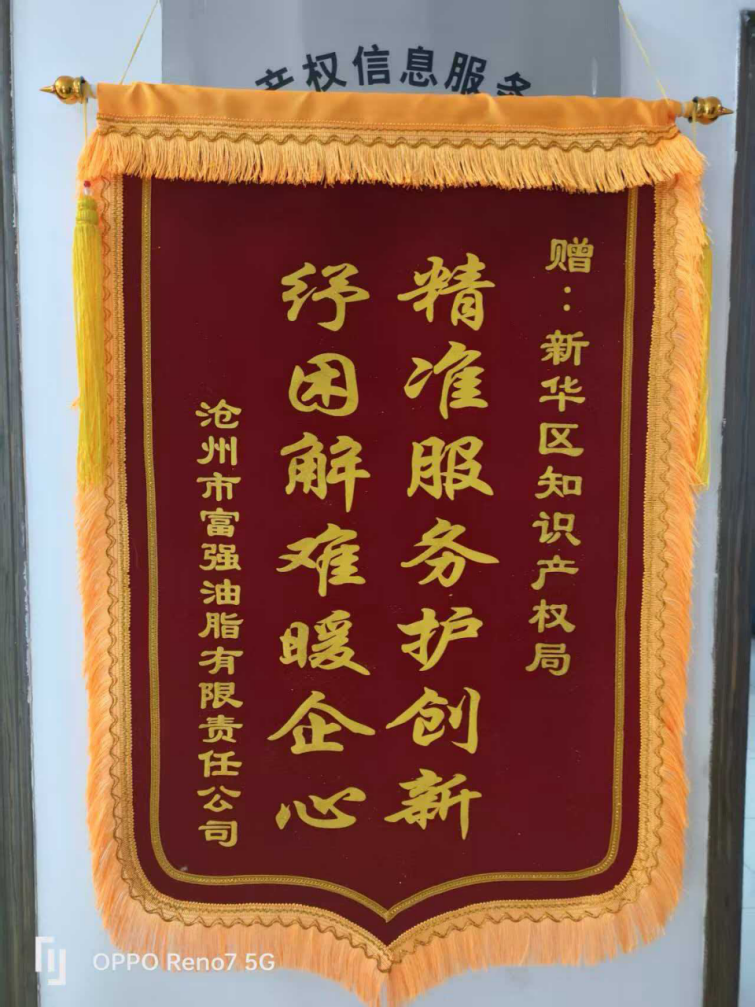 产权信息服务
赠：新华区知识产权局
精准服务护创新
纾困解难暖企心
沧州市富强油脂有限责任公司
OPPO Reno7 5G